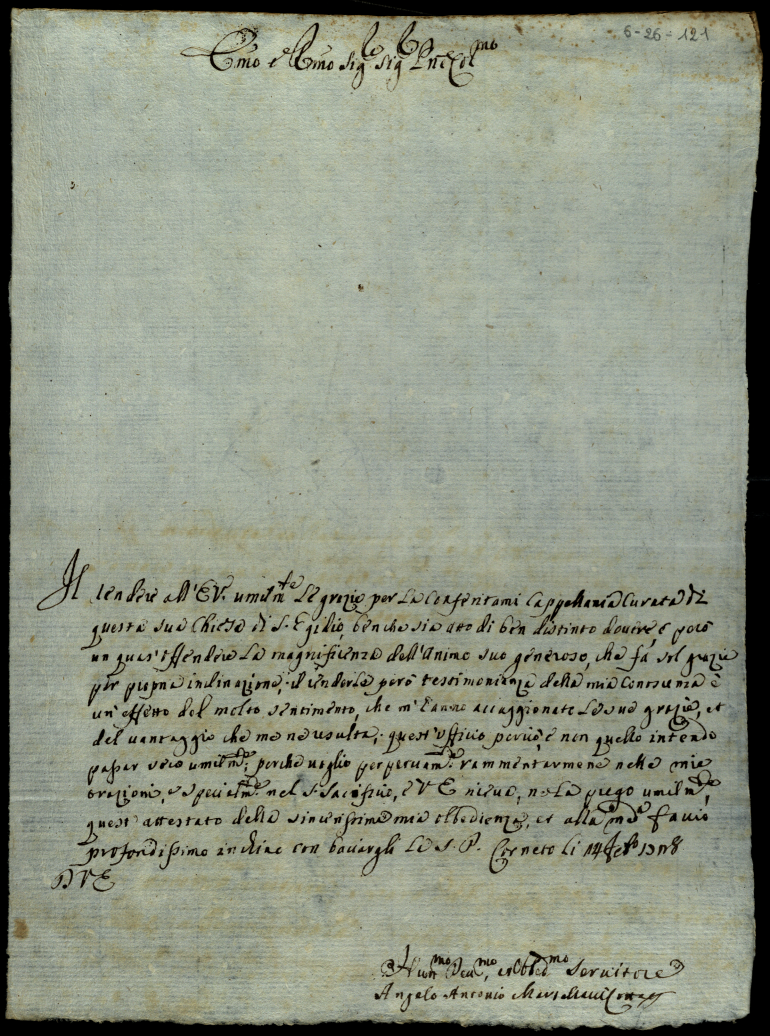 6-26-121
Emo e Rmo Sig.re Sig.re Pne Col.mo
Il rendere all'E.V. umilm.te le grazie per la conferitami Cappellania Curata di
questa sua Chiesa di S. Egidio, benche sia atto di ben distinto dovere, è però
un quasi offendere la magnificienza dell'Animo suo generoso, che fà sol grazie
per propria inclinazione; il renderle però testimonianza della mia
un'effetto del molto sentimento, che m'hanno accaggionate le sue grazie, et
del vantaggio che me ne resulta; quest'ufficio perciò è non quello intendo
passar seco umilm.te, perche voglio perpetuam.te rammentarmene nelle mie
orazioni, e specialm.te nel S. Sacrificio, e V E riceva, ne la priego umilm.te,
quest'attestato della sincerissima mia obbedienza, et alla med.a faccio
profondissimo inchino con baciargli la S. P. Corneto li 14 Feb.o
D V E
Hum.mo Dev.mo, et Obbed.mo Servitore
Angelo Antonio